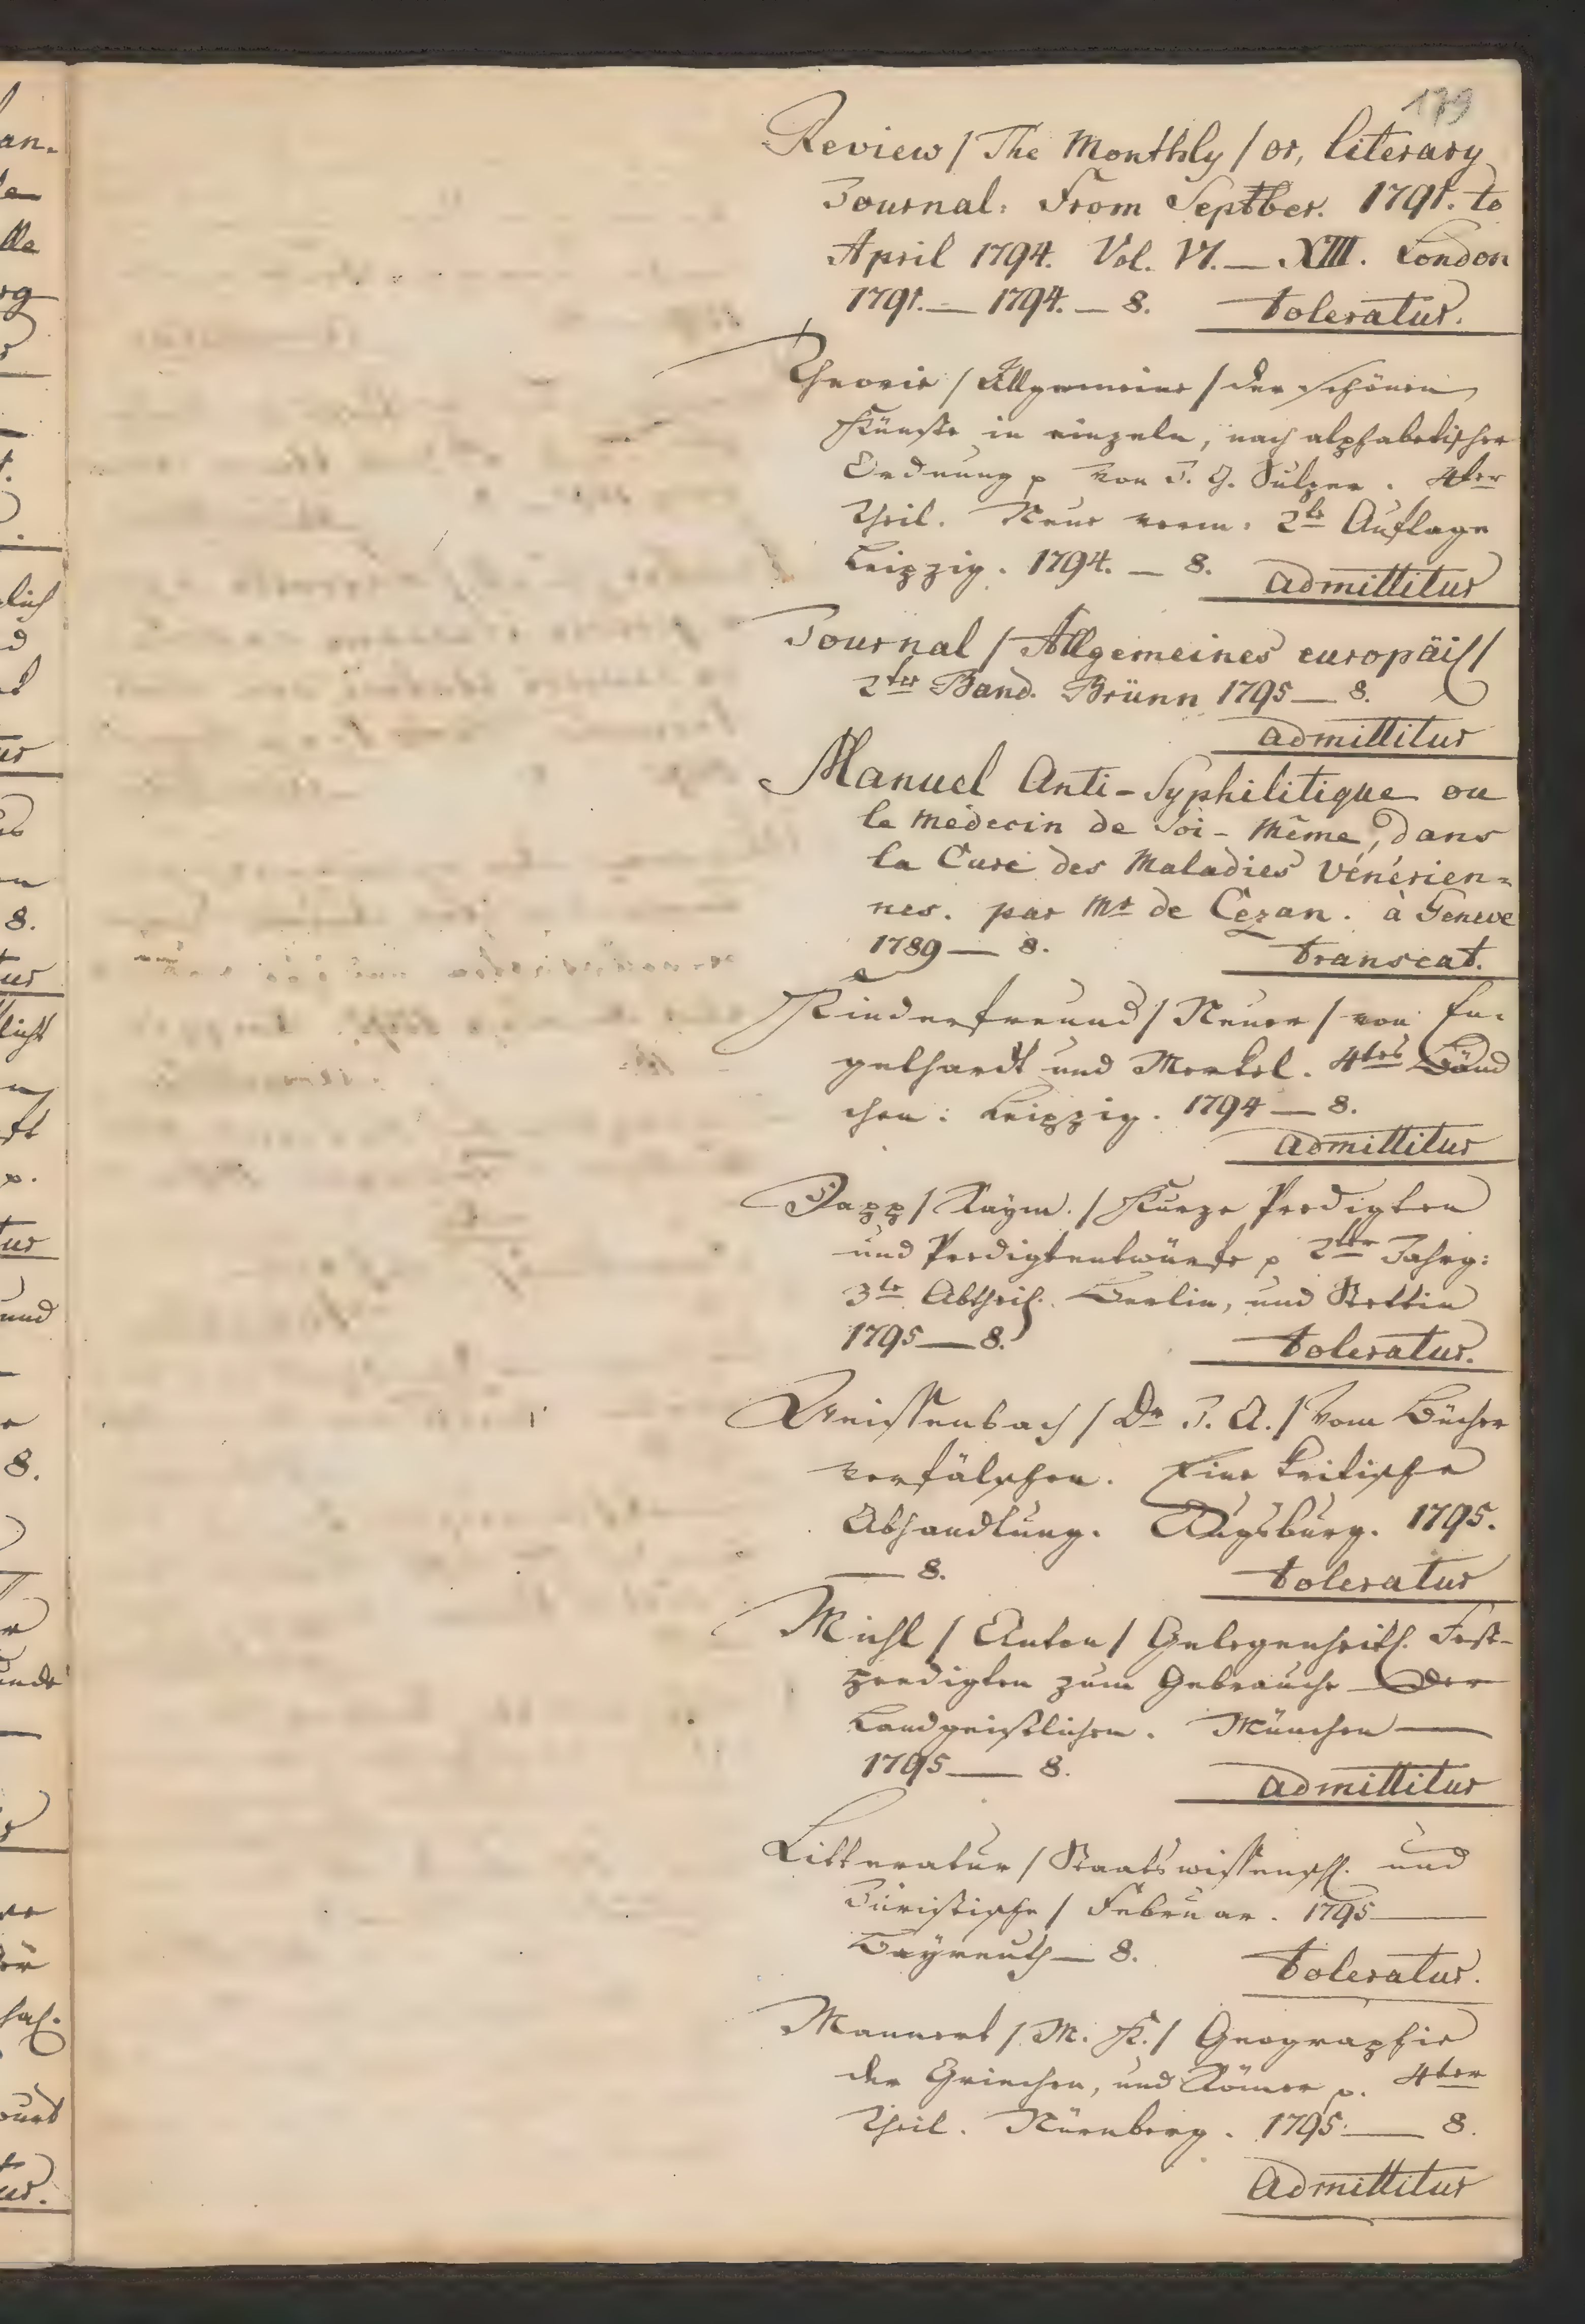 179
Review / The Monthly / or, literary
Journal: From Septber. 1791. to
April 1794. Vol. VI. — XIII. London
1791. — 1794. — 8. toleratur.
Theorie / Allgemeine / der schönen
Künste in einzeln, nach alphabetischer
Ordnung p von J. G. Sulzer. 4ter
Theil. Neue verm: 2te Auflage
Leipzig. 1794. — 8. admittitur
Journal / Allgemeines europäisch /
2ter Band. Brünn 1795 — 8.
admittitur
Manuel Anti-Syphilitique ou
le Médecin de Soi-Même, dans
la Cure des Maladies Vénérien=
nes. par Mr de Cézan. à Geneve
1789 — 8. transeat.
Kinderfreund / Neuer / von En-
gelhardt und Merkel. 4tes Bänd
chen: Leipzig. 1794 — 8.
admittitur
Dapp / Raym. / Kurze Predigten
und Predigtentwürfe p 2ter Jahrg:
3te Abtheil. Berlin, und Stettin
1795 — 8. toleratur.
Weissenbach / Dr J. A. / Vom Bücher
verfälschen. Eine kritische
Abhandlung. Augsburg. 1795.
— 8. toleratur
Michl / Anton / Gelegenheitl. Fest-
predigten zum Gebrauche der
Landgeistlichen. München —
1795 — 8. admittitur
Litteratur / Staatswissensch. und
Juristische / Februar. 1795 —
Bayreuth — 8. toleratur.
Mannert / M. K. / Geographie
der Griechen, und Römer p. 4ter
Theil. Nürnberg. 1795 — 8.
Admittitur